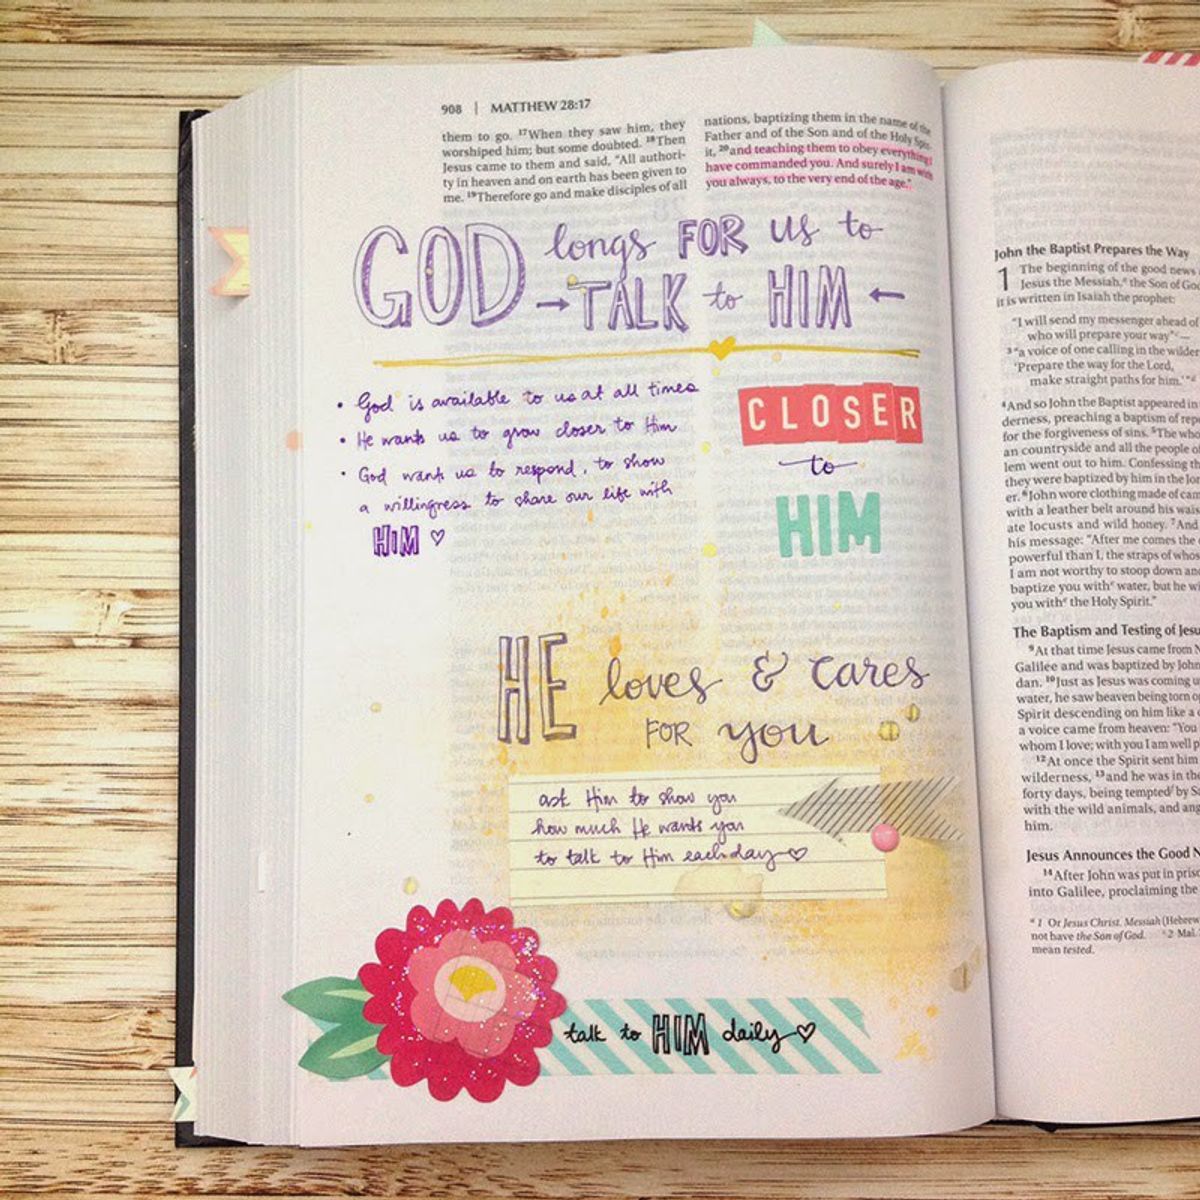 908 | MATTHEW 28:17
them to go. 17When they saw him, they
worshiped him; but some doubted. 18Then
Jesus came to them and said, "All authori-
ty in heaven and on earth has been given to
me. 19Therefore go and make disciples of all
nations, baptizing them in the name of the
Father and of the Son and of the Holy Spir-
it, 20and teaching them to obey everything I
have commanded you. And surely I am with
you always, to the very end of the age."
GOD longs FOR us to
→TALK to HIM ←
• God is available to us at all times
• He wants us to grow closer to Him
• God wants us to respond, to show
a willingness to share our life with
HIM ♡
CLOSER
to
HIM
HE loves & cares
FOR you
ask Him to show you
how much He wants you
to talk to Him each day ♡
talk to HIM daily ♡
John the Baptist Prepares the Way
1 The beginning of the good news
Jesus the Messiah, the Son of God
it is written in Isaiah the prophet:
"I will send my messenger ahead of
who will prepare your way"—
3"a voice of one calling in the wilder
'Prepare the way for the Lord,
make straight paths for him.'"
4And so John the Baptist appeared in
derness, preaching a baptism of repe
for the forgiveness of sins. 5The who
an countryside and all the people of
lem went out to him. Confessing th
they were baptized by him in the Jor
er. 6John wore clothing made of cam
with a leather belt around his wais
ate locusts and wild honey. 7And
his message: "After me comes the
powerful than I, the straps of whos
I am not worthy to stoop down and
baptize you with water, but he wi
you with the Holy Spirit."
The Baptism and Testing of Jesu
9At that time Jesus came from N
Galilee and was baptized by John
dan. 10Just as Jesus was coming u
water, he saw heaven being torn o
Spirit descending on him like a
a voice came from heaven: "You
whom I love; with you I am well p
12At once the Spirit sent him
wilderness, 13and he was in the
forty days, being tempted by Sa
with the wild animals, and ang
him.
Jesus Announces the Good N
14After John was put in priso
into Galilee, proclaiming the
a 1 Or Jesus Christ. Messiah (Hebrew
not have the Son of God. c 2 Mal.
mean tested.